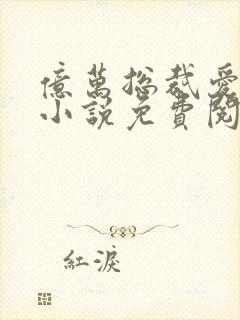 億萬總裁愛
小說免費閱
紅淚